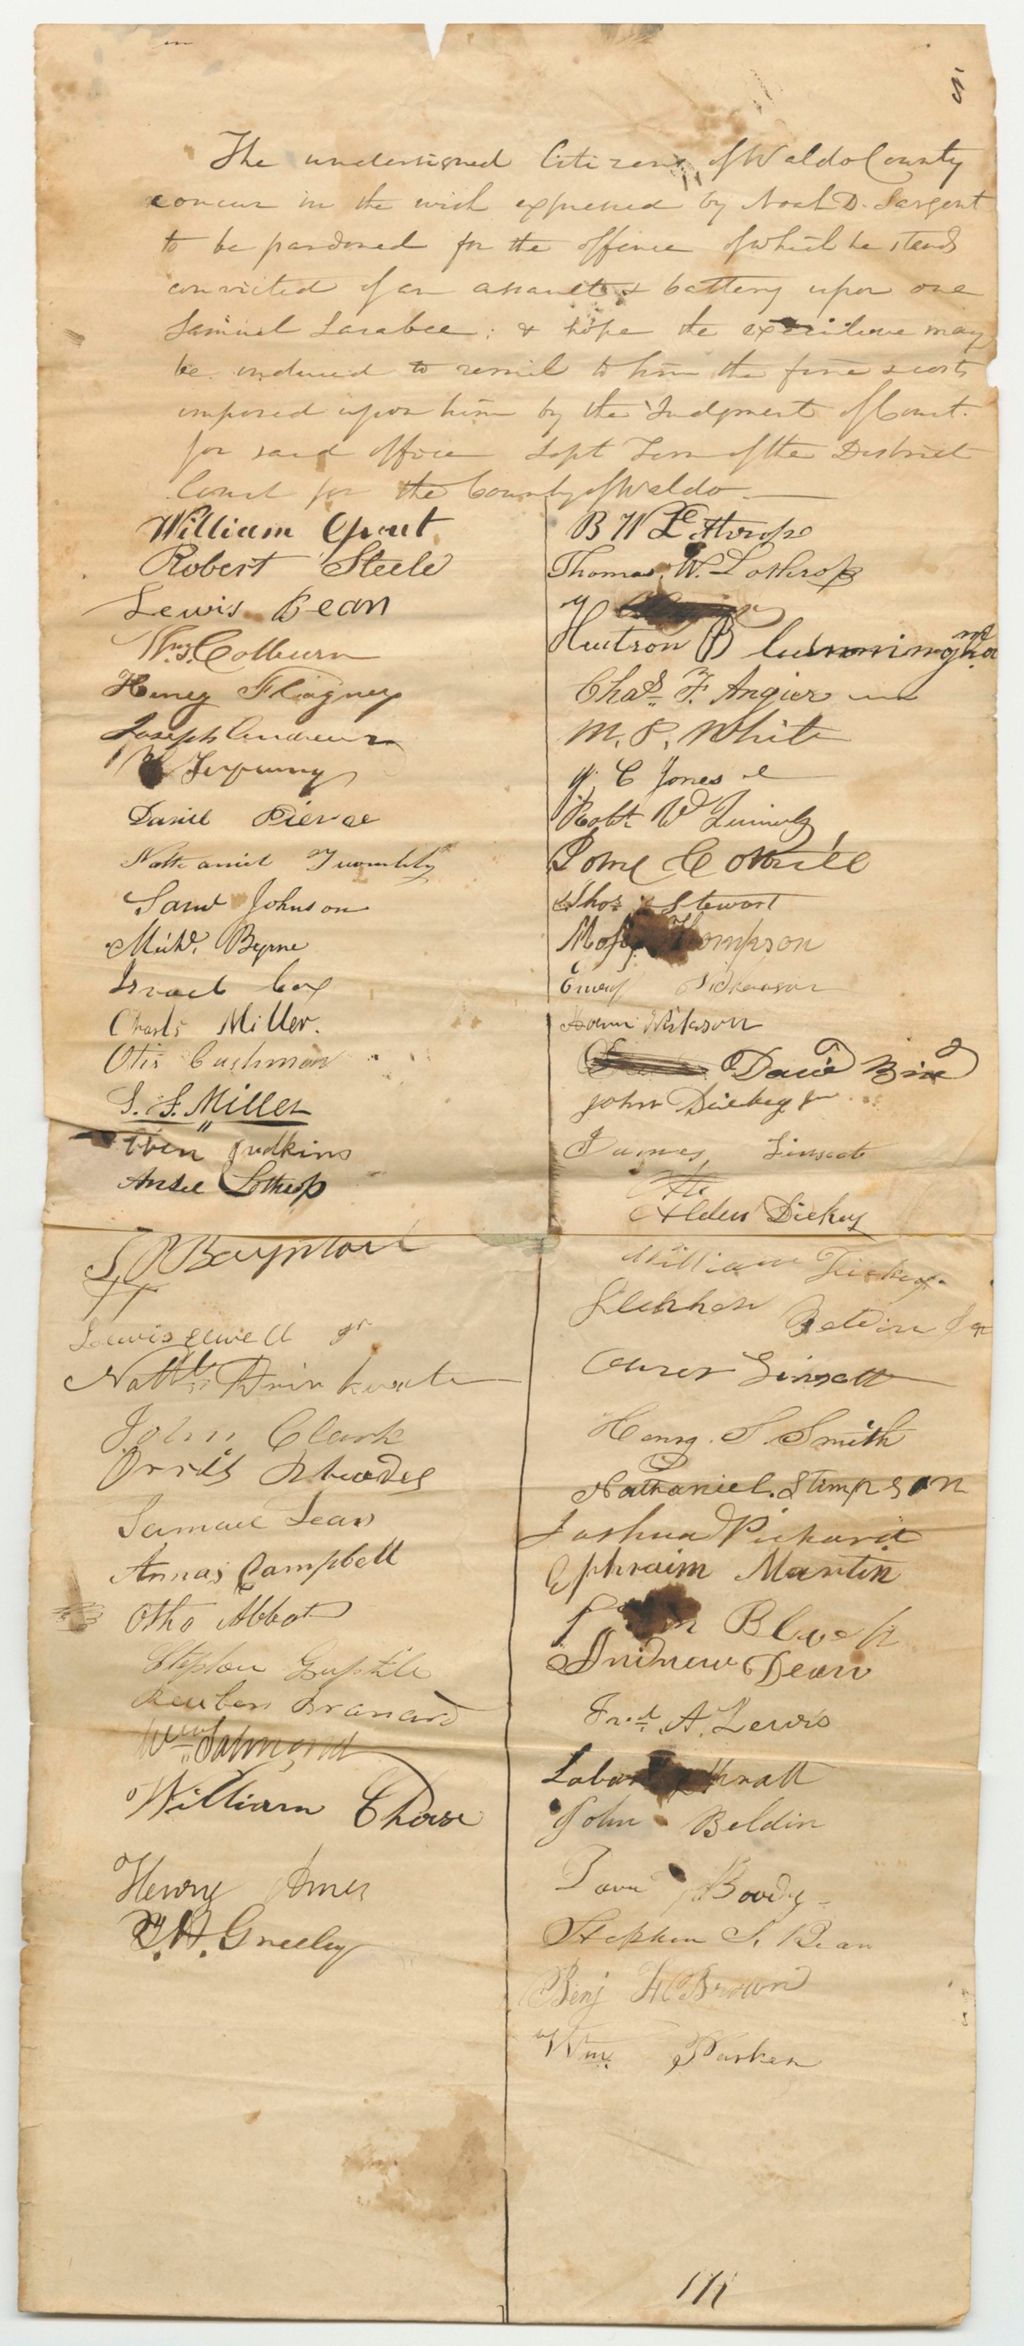 The undersigned Citizens of Waldo County
concur in the wish expressed by Noah D. Sargent
to be pardoned for the offence of which he stands
convicted of an assault & battery upon one
Samuel Larabee; & hope the executive may
be induced to remit to him the fine & costs
imposed upon him by the Judgment of Court
for said offence Sept Term of the District
Court for the County of Waldo
William Grout
Robert Steele
Lewis Bean
Wm. Colburn
Henry Flagney
Joseph Andrews
Daniel Pierce
Nathaniel Twombly
Saml Johnson
Michl. Byrne
Israel Cox
Charls Miller.
Otis Cushman
S. F. Miller
Eben Judkins
Ansel Lothrop
Boynton
Lewis Jewell Jr
Nathl Drinkwater
John Clark
Orris Rhoades
Samuel
Annas Campbell
Otho Abbot
Stephen Guptile
Reuben Branard
Wm Salmond
William Chase
Henry Ames
Greeley
B W Lothrop
Thomas W. Lothrop
Hutson B Cunningham
Chas. F. Angier
M. P. White
J. C. Jones
Robt W
Cottrill
Thos Stewart
Thompson
Emery Dickerson
David
John Dickey Jr
James Linscott
Alden Dickey
William Dickey
Stephen Beldin Jr
Linscott
Henry S. Smith
Nathaniel Stimpson
Joshua Pickard
Ephraim Martin
Black
Andrew Dean
Fred. A. Lewis
Pratt
John Beldin
Boody
Stephen S. Bean
Benj H Brown
Wm. Parker